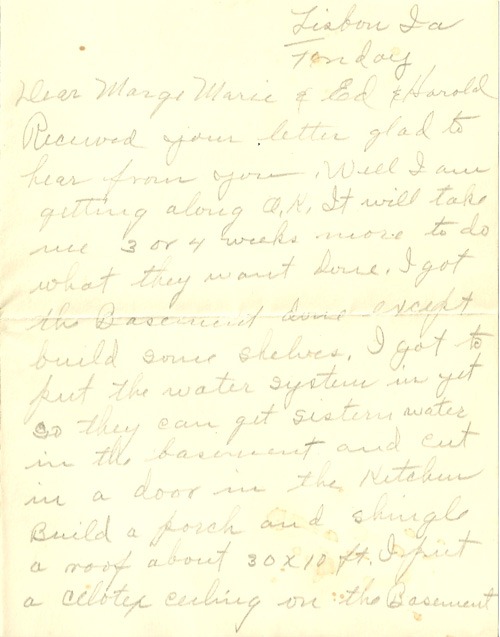 Lisbon Ia
Dear Marge Marie & Ed & Harold
Received your letter glad to
hear from you. Well I am
getting along O.K. It will take
me 3 or 4 weeks more to do
what they want done. I got
the Basement done except
build some shelves. I got to
put the water system in yet
so they can get sistern water
in the basement and cut
in a door in the Kitchen
Build a porch and shingle
a roof about 30 x 10 ft. I put
a celotex ceiling on the Basement